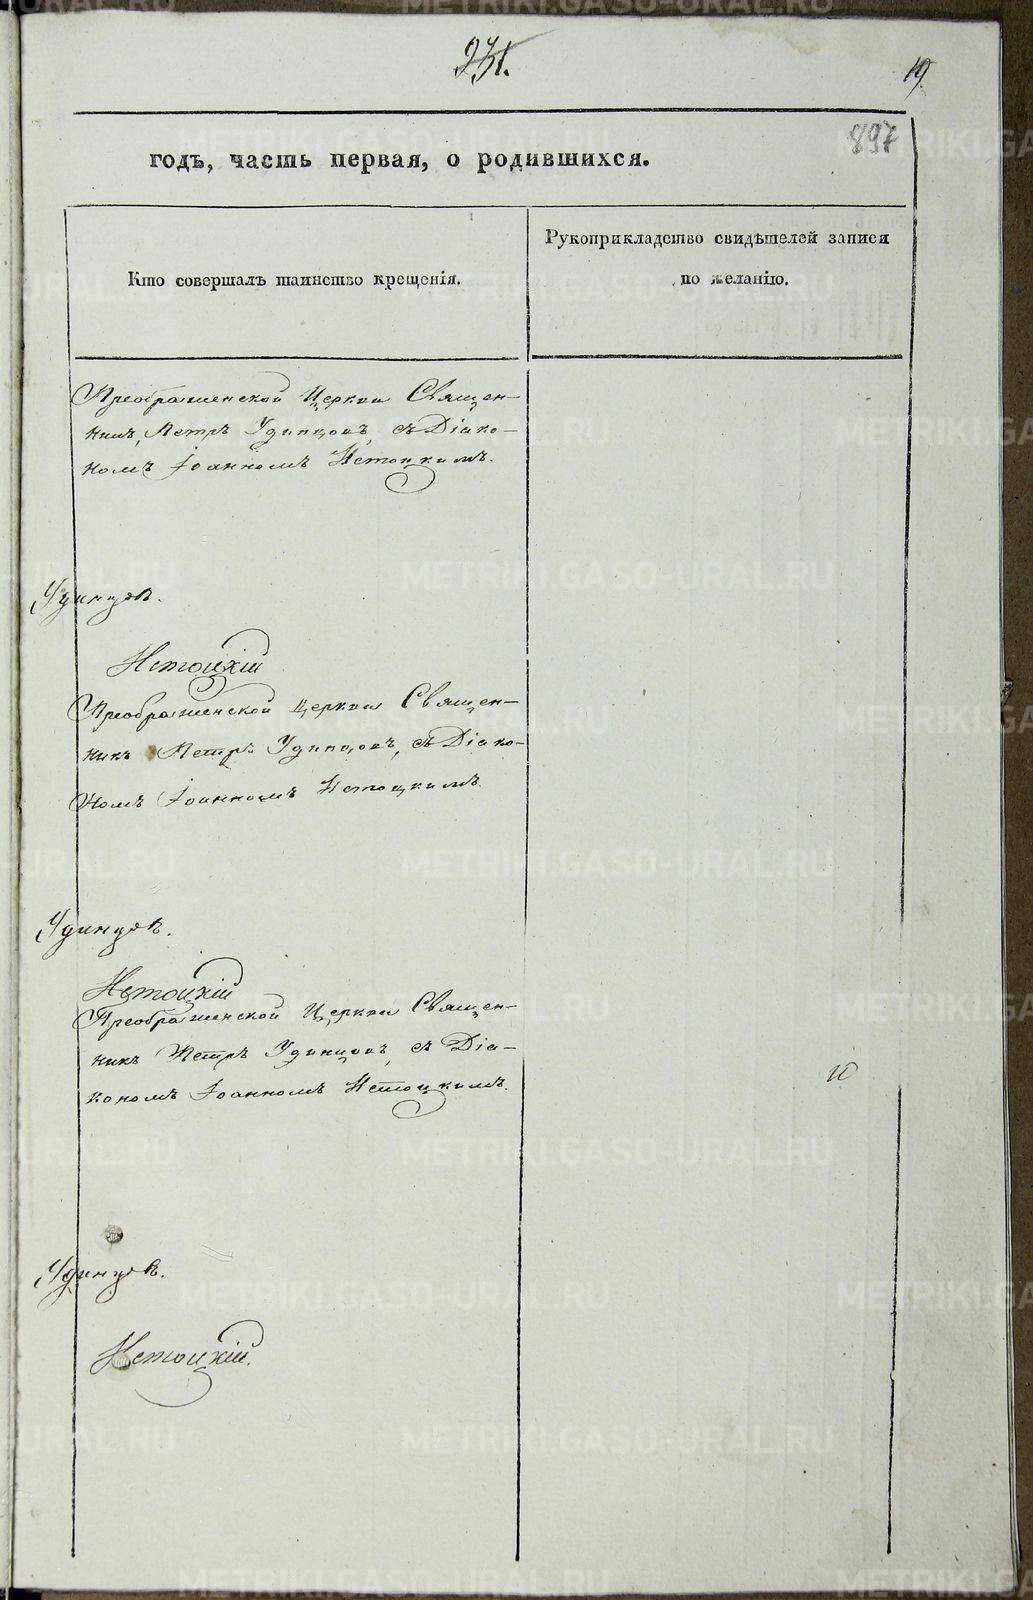 231.
19.
897
годъ, часть первая, о родившихся.
Кто совершалъ таинство крещенія.
Рукоприкладство свидѣтелей записи
по желанію.
Преображенской Церкви Священ-
никъ, Петръ Удинцовъ, съ Діако-
номъ Іоанномъ Истоцкимъ.
Удинцовъ.
Истоцкій
Преображенской церкви Священ-
никъ Петръ Удинцовъ, съ Діако-
номъ Іоанномъ Истоцкимъ
Удинцовъ.
Истоцкій
Преображенской Церкви Священ-
никъ Петръ Удинцовъ, съ Діа-
кономъ Іоанномъ Истоцкимъ.
Удинцовъ.
Истоцкій.
METRIKI.GASO-URAL.RU